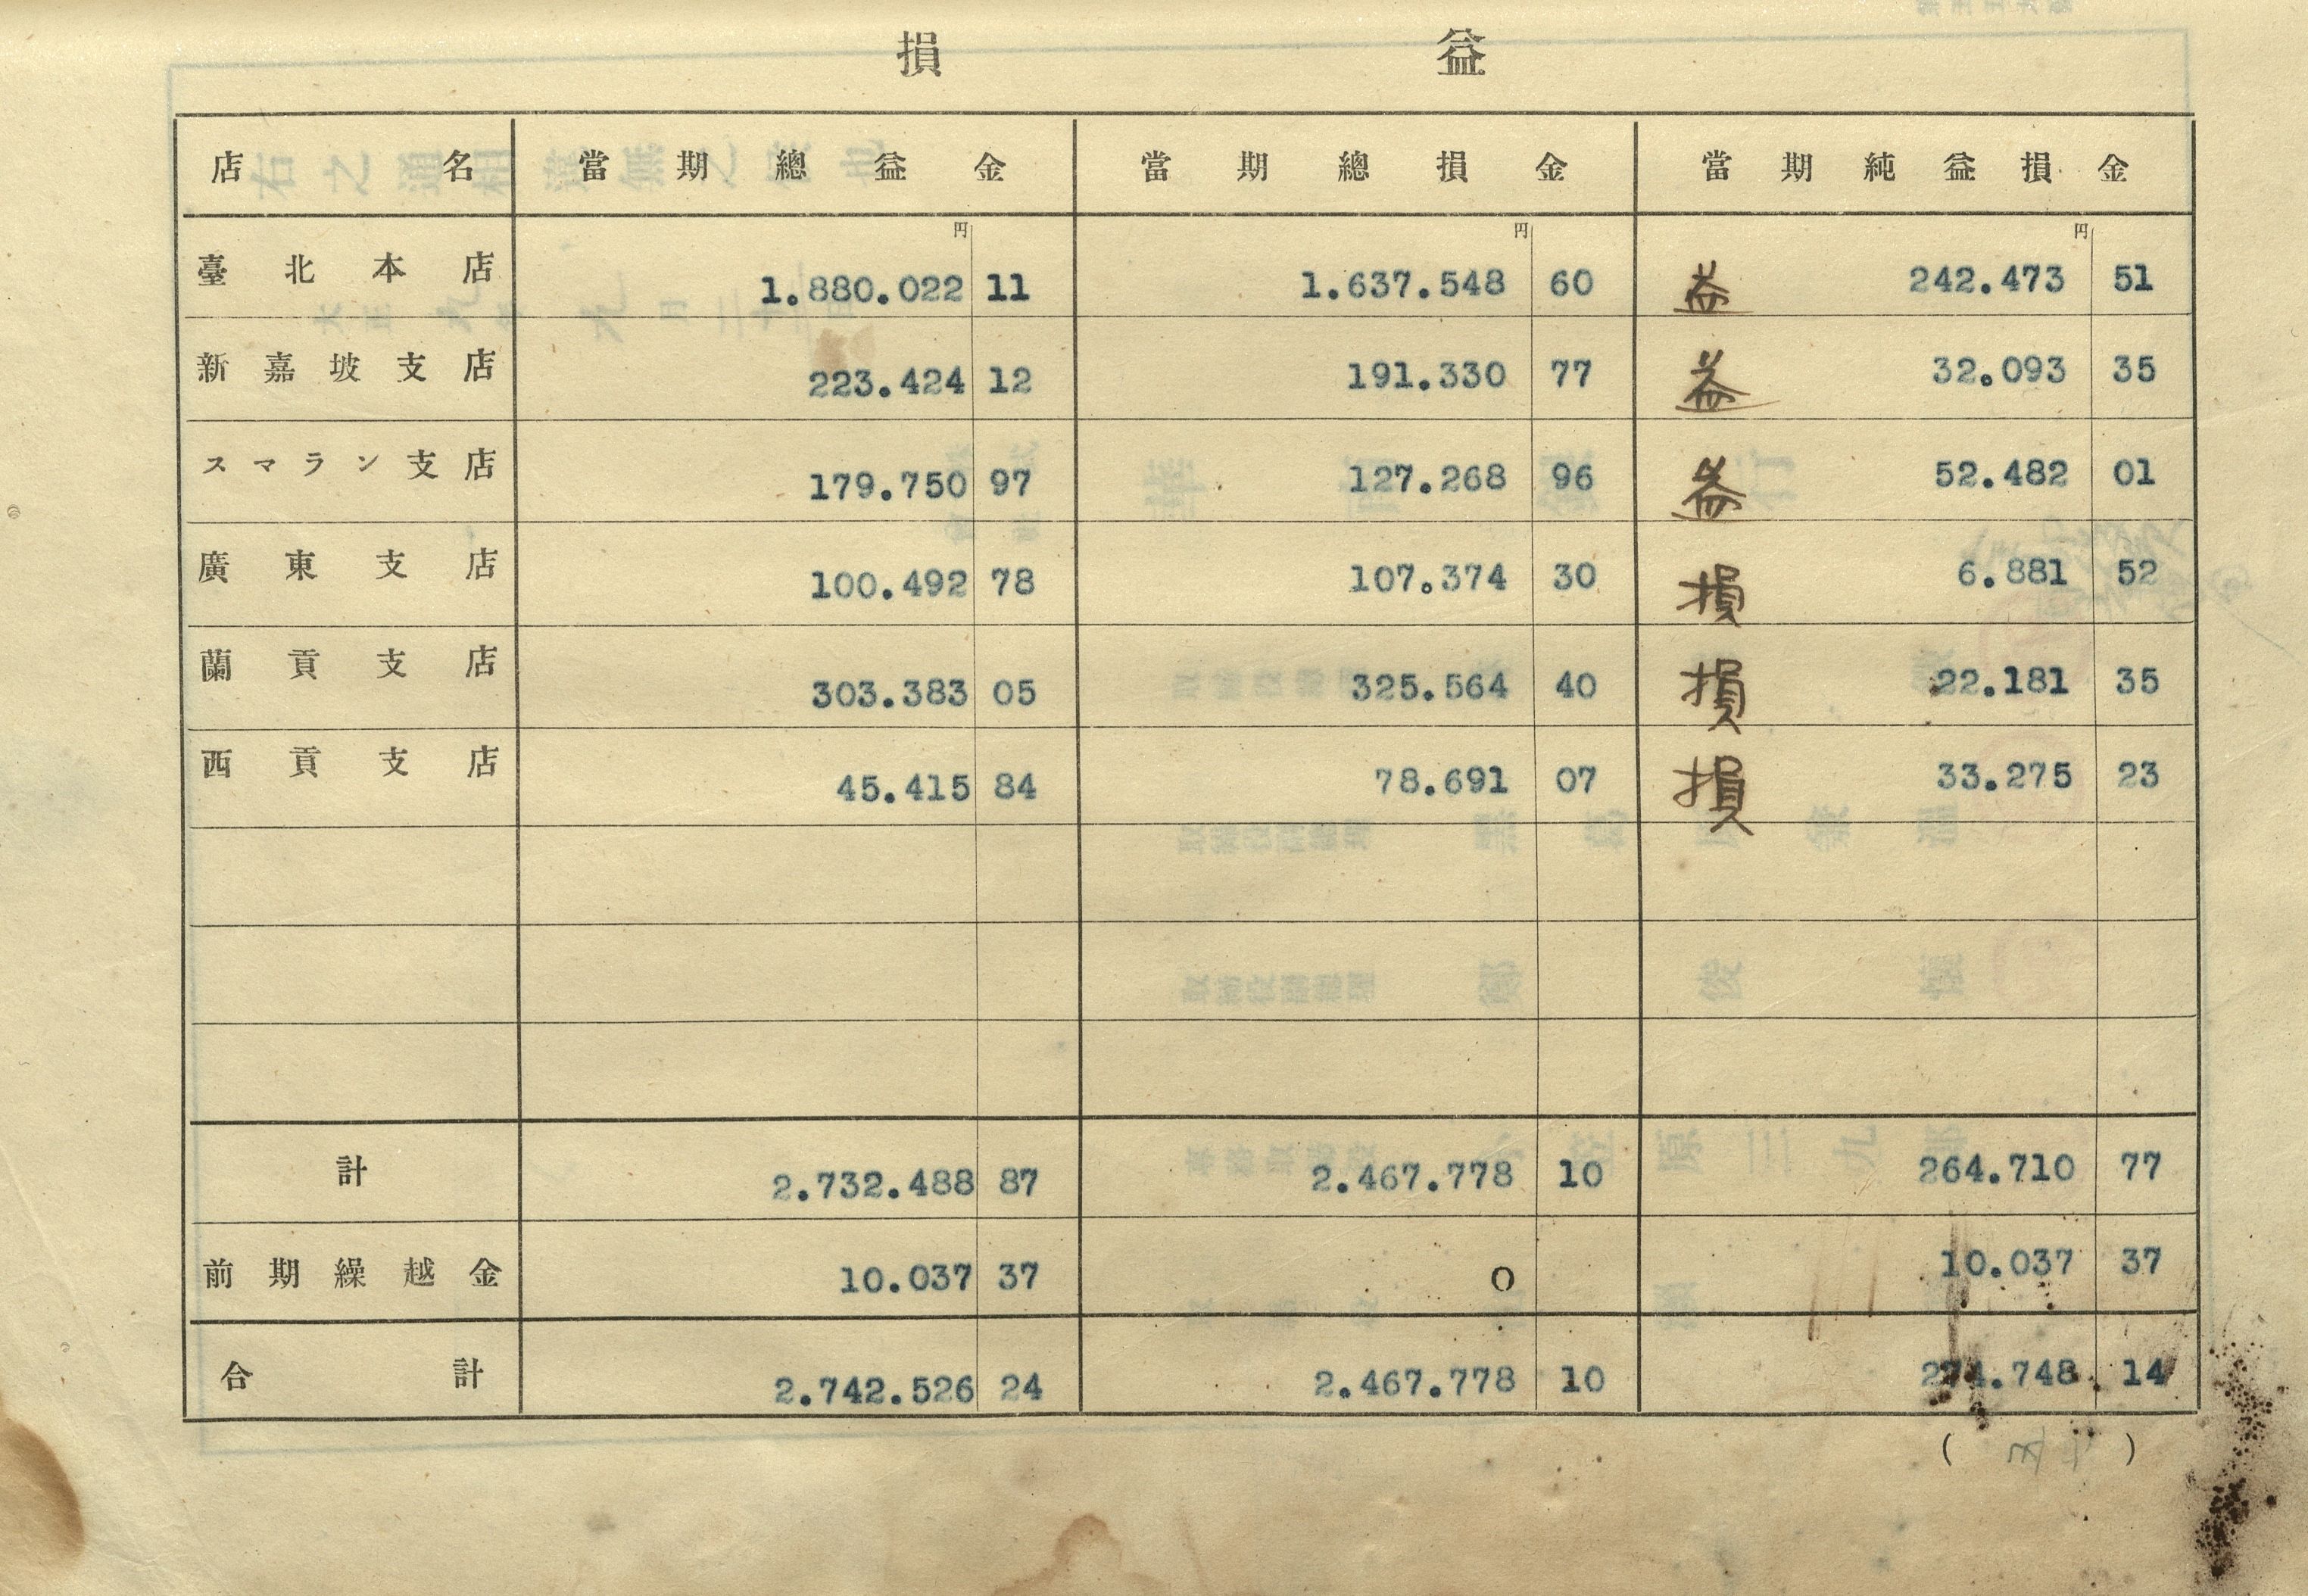 損益
店名 當期總益金 當期總損金 當期純益損金
円 円 円
臺北本店 1.880.022 11 1.637.548 60 益 242.473 51
新嘉坡支店 223.424 12 191.330 77 益 32.093 35
スマラン支店 179.750 97 127.268 96 益 52.482 01
廣東支店 100.492 78 107.374 30 損 6.881 52
蘭貢支店 303.383 05 325.564 40 損 22.181 35
西貢支店 45.415 84 78.691 07 損 33.275 23
計 2.732.488 87 2.467.778 10 264.710 77
前期繰越金 10.037 37 0 10.037 37
合計 2.742.526 24 2.467.778 10 274.748 14